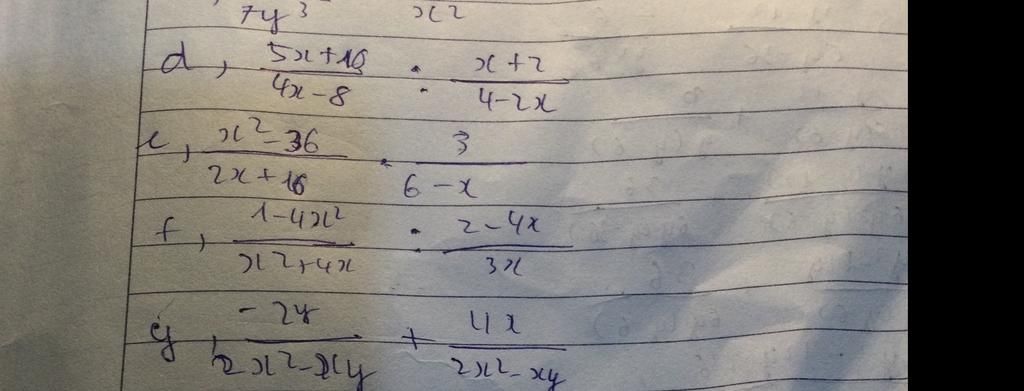 7y³ x²
d, (5x+10)/(4x-8) : (x+2)/(4-2x)
e, (x²-36)/(2x+10) . 3/(6-x)
f, (1-4x²)/(x²+4x) : (2-4x)/(3x)
g, (-2y)/(2x²-xy) + (4x)/(2x²-xy)